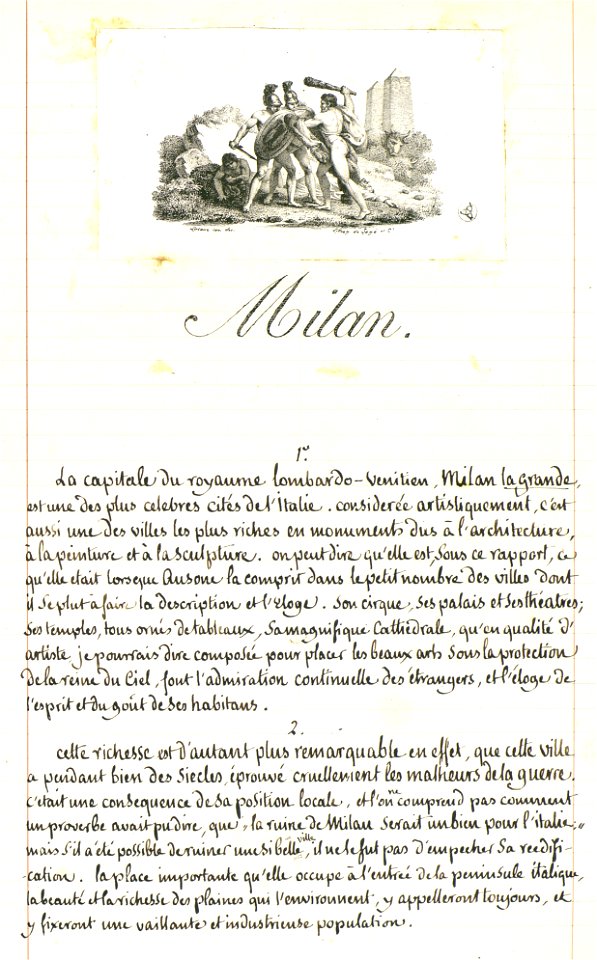 Milan.
1º
La capitale du royaume lombardo-venitien, Milan la grande,
est une des plus celebres cités de l'Italie. considerée artistiquement, c'est
aussi une des villes les plus riches en monuments dus à l'architecture,
à la peinture et à la sculpture. on peut dire qu'elle est, sous ce rapport, ce
qu'elle etait lorsque Ausone la comprit dans le petit nombre des villes dont
il se plut à faire la description et l'eloge. son cirque, ses palais et ses théatres;
ses temples, tous ornés de tableaux, sa magnifique Cathédrale, qu'en qualité d'
artiste je pourrais dire composée pour placer les beaux arts sous la protection
de la reine du Ciel, font l'admiration continuelle des étrangers, et l'éloge de
l'esprit et du goût de ses habitans.
2.
cette richesse est d'autant plus remarquable en effet, que cette ville
a pendant bien des siecles, éprouvé cruellement les malheurs de la guerre.
c'était une consequence de sa position locale, et l'on ne comprend pas comment
un proverbe avait pu dire, que „ la ruine de Milan serait un bien pour l'italie; „
mais s'il a été possible de ruiner une si belle ville, il ne le fut pas d'empecher sa reedifi-
-cation. la place importante qu'elle occupe à l'entrée de la peninsule italique,
la beauté et la richesse des plaines qui l'environnent, y appelleront toujours, et
y fixeront une vaillante et industrieuse population.